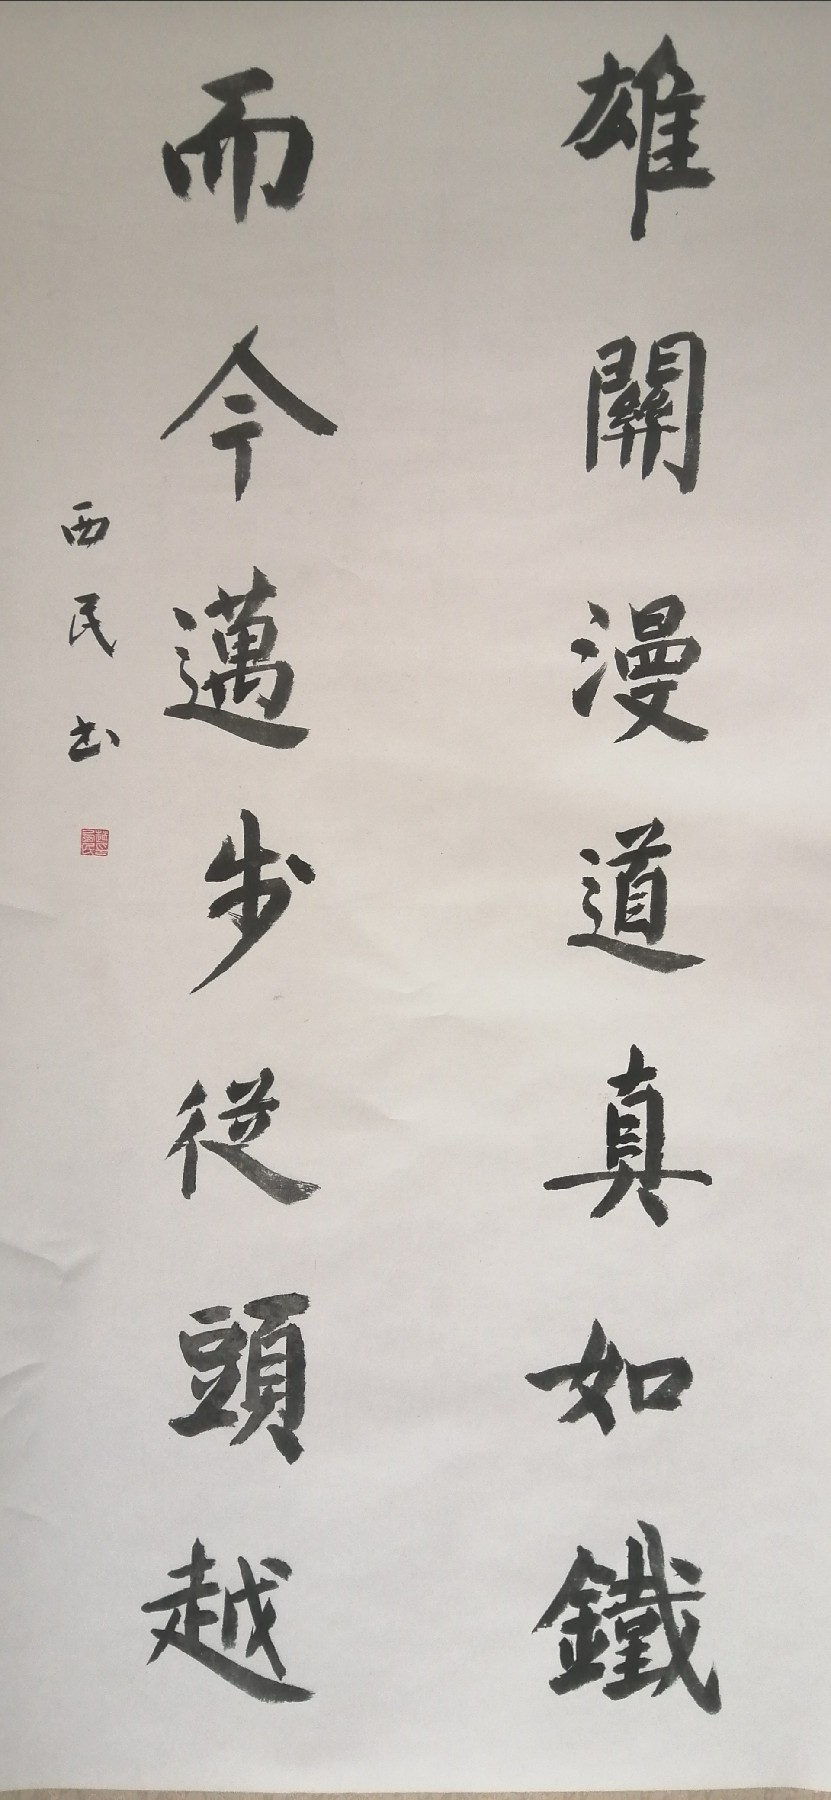 雄關漫道真如鐵
而今邁步從頭越
西民书